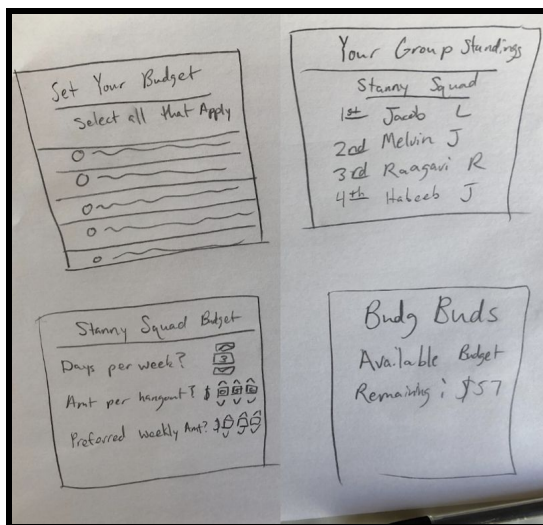 Set Your Budget
Select all that Apply
Your Group Standings
Stanny Squad
1st Jacob L
2nd Melvin J
3rd Raagavi R
4th Habeeb J
Stanny Squad Budget
Days per week? 3
Amt per hangout? $
Preferred weekly Amt? $
Budg Buds
Available Budget
Remaining: $57